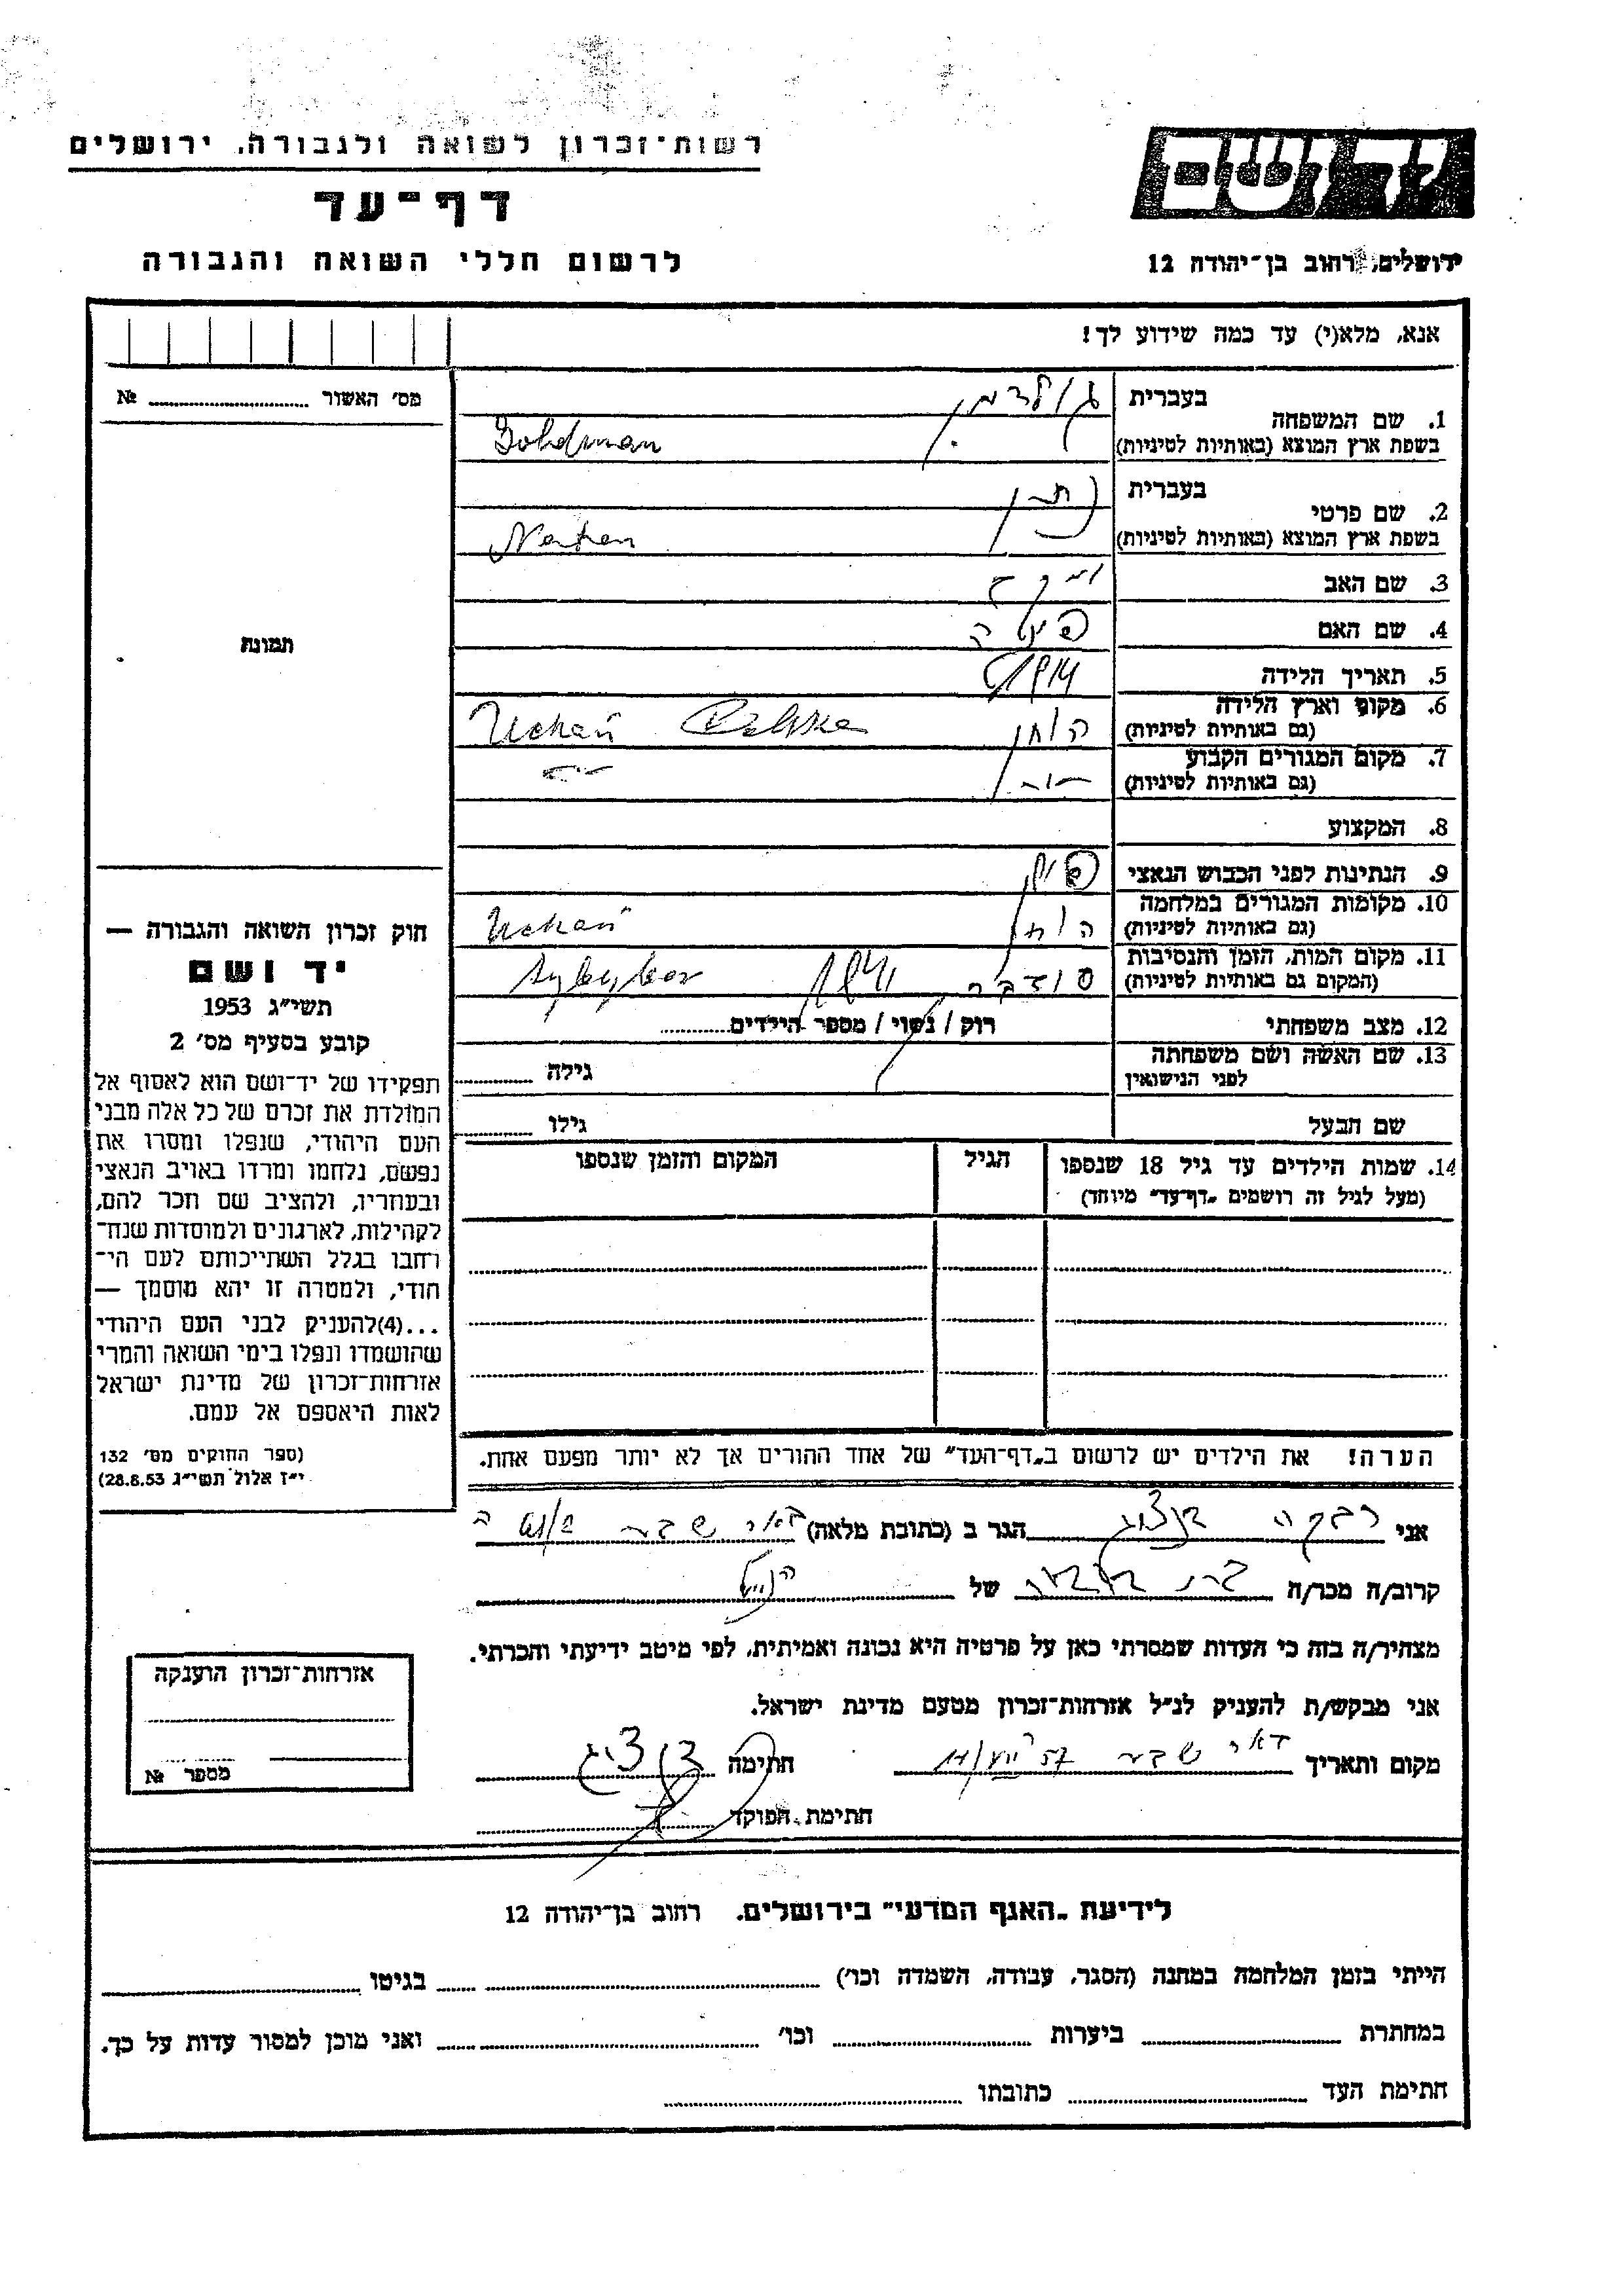 רשות־זכרון לשואה ולגבורה, ירושלים
דף־עד
לרשום חללי השואה והגבורה
יד ושם
ירושלים, רחוב בן־יהודה 12
אנא, מלא(י) עד כמה שידוע לך!
מס׳ האשור № 
1. שם המשפחה
בעברית גולדמן
בשפת ארץ המוצא (באותיות לטיניות) Goldman
2. שם פרטי
בעברית נתן
בשפת ארץ המוצא (באותיות לטיניות) Natan
3. שם האב
4. שם האם
5. תאריך הלידה 1914
6. מקום וארץ הלידה
(גם באותיות לטיניות) Uchań Polska
7. מקום המגורים הקבוע
(גם באותיות לטיניות)
8. המקצוע
9. הנתינות לפני הכבוש הנאצי פולן
10. מקומות המגורים במלחמה
(גם באותיות לטיניות) Uchań
11. מקום המות, הזמן והנסיבות
(המקום גם באותיות לטיניות)
12. מצב משפחתי רוק / נשוי / מספר הילדים
13. שם האשה ושם משפחתה
לפני הנישואין גילה
שם הבעל גילו
14. שמות הילדים עד גיל 18 שנספו הגיל המקום והזמן שנספו
(מעל לגיל זה רושמים „דף־עד״ מיוחד)
הערה! את הילדים יש לרשום ב„דף־העד״ של אחד ההורים אך לא יותר מפעם אחת.
תמונת
חוק זכרון השואה והגבורה —
יד ושם
תשי״ג 1953
קובע בסעיף מס׳ 2
תפקידו של יד־ושם הוא לאסוף אל
המולדת את זכרם של כל אלה מבני
העם היהודי, שנפלו ומסרו את
נפשם, נלחמו ומרדו באויב הנאצי
ובעוזריו, ולהציב שם וזכר להם,
לקהילות, לארגונים ולמוסדות שנח־
רחבו בגלל השתייכותם לעם הי־
הודי, ולמטרה זו יהא מוסמך —
...(4)להעניק לבני העם היהודי
שהושמדו ונפלו בימי השואה והמרי
אזרחות־זכרון של מדינת ישראל
לאות היאספם אל עמם.
(ספר החוקים מס׳ 132
י״ז אלול תשי״ג 28.8.53)
אני רבקה דנציג הגר ב (כתובת מלאה) באר שבע
קרוב/ה מכר/ה של הנ״ל
מצהיר/ה בזה כי העדות שמסרתי כאן על פרטיה היא נכונה ואמיתית, לפי מיטב ידיעתי והכרתי.
אני מבקש/ת להעניק לנ״ל אזרחות־זכרון מטעם מדינת ישראל.
מקום ותאריך באר שבע חתימה דנציג
חתימת הפוקד
אזרחות־זכרון הוענקה
מספר №
לידיעת „האגף המדעי״ בירושלים, רחוב בן־יהודה 12
הייתי בזמן המלחמה במחנה (הסגר, עבודה, השמדה וכו׳) בגיטו
במחתרת ביערות וכו׳ ואני מוכן למסור עדות על כך.
חתימת העד כתובתו